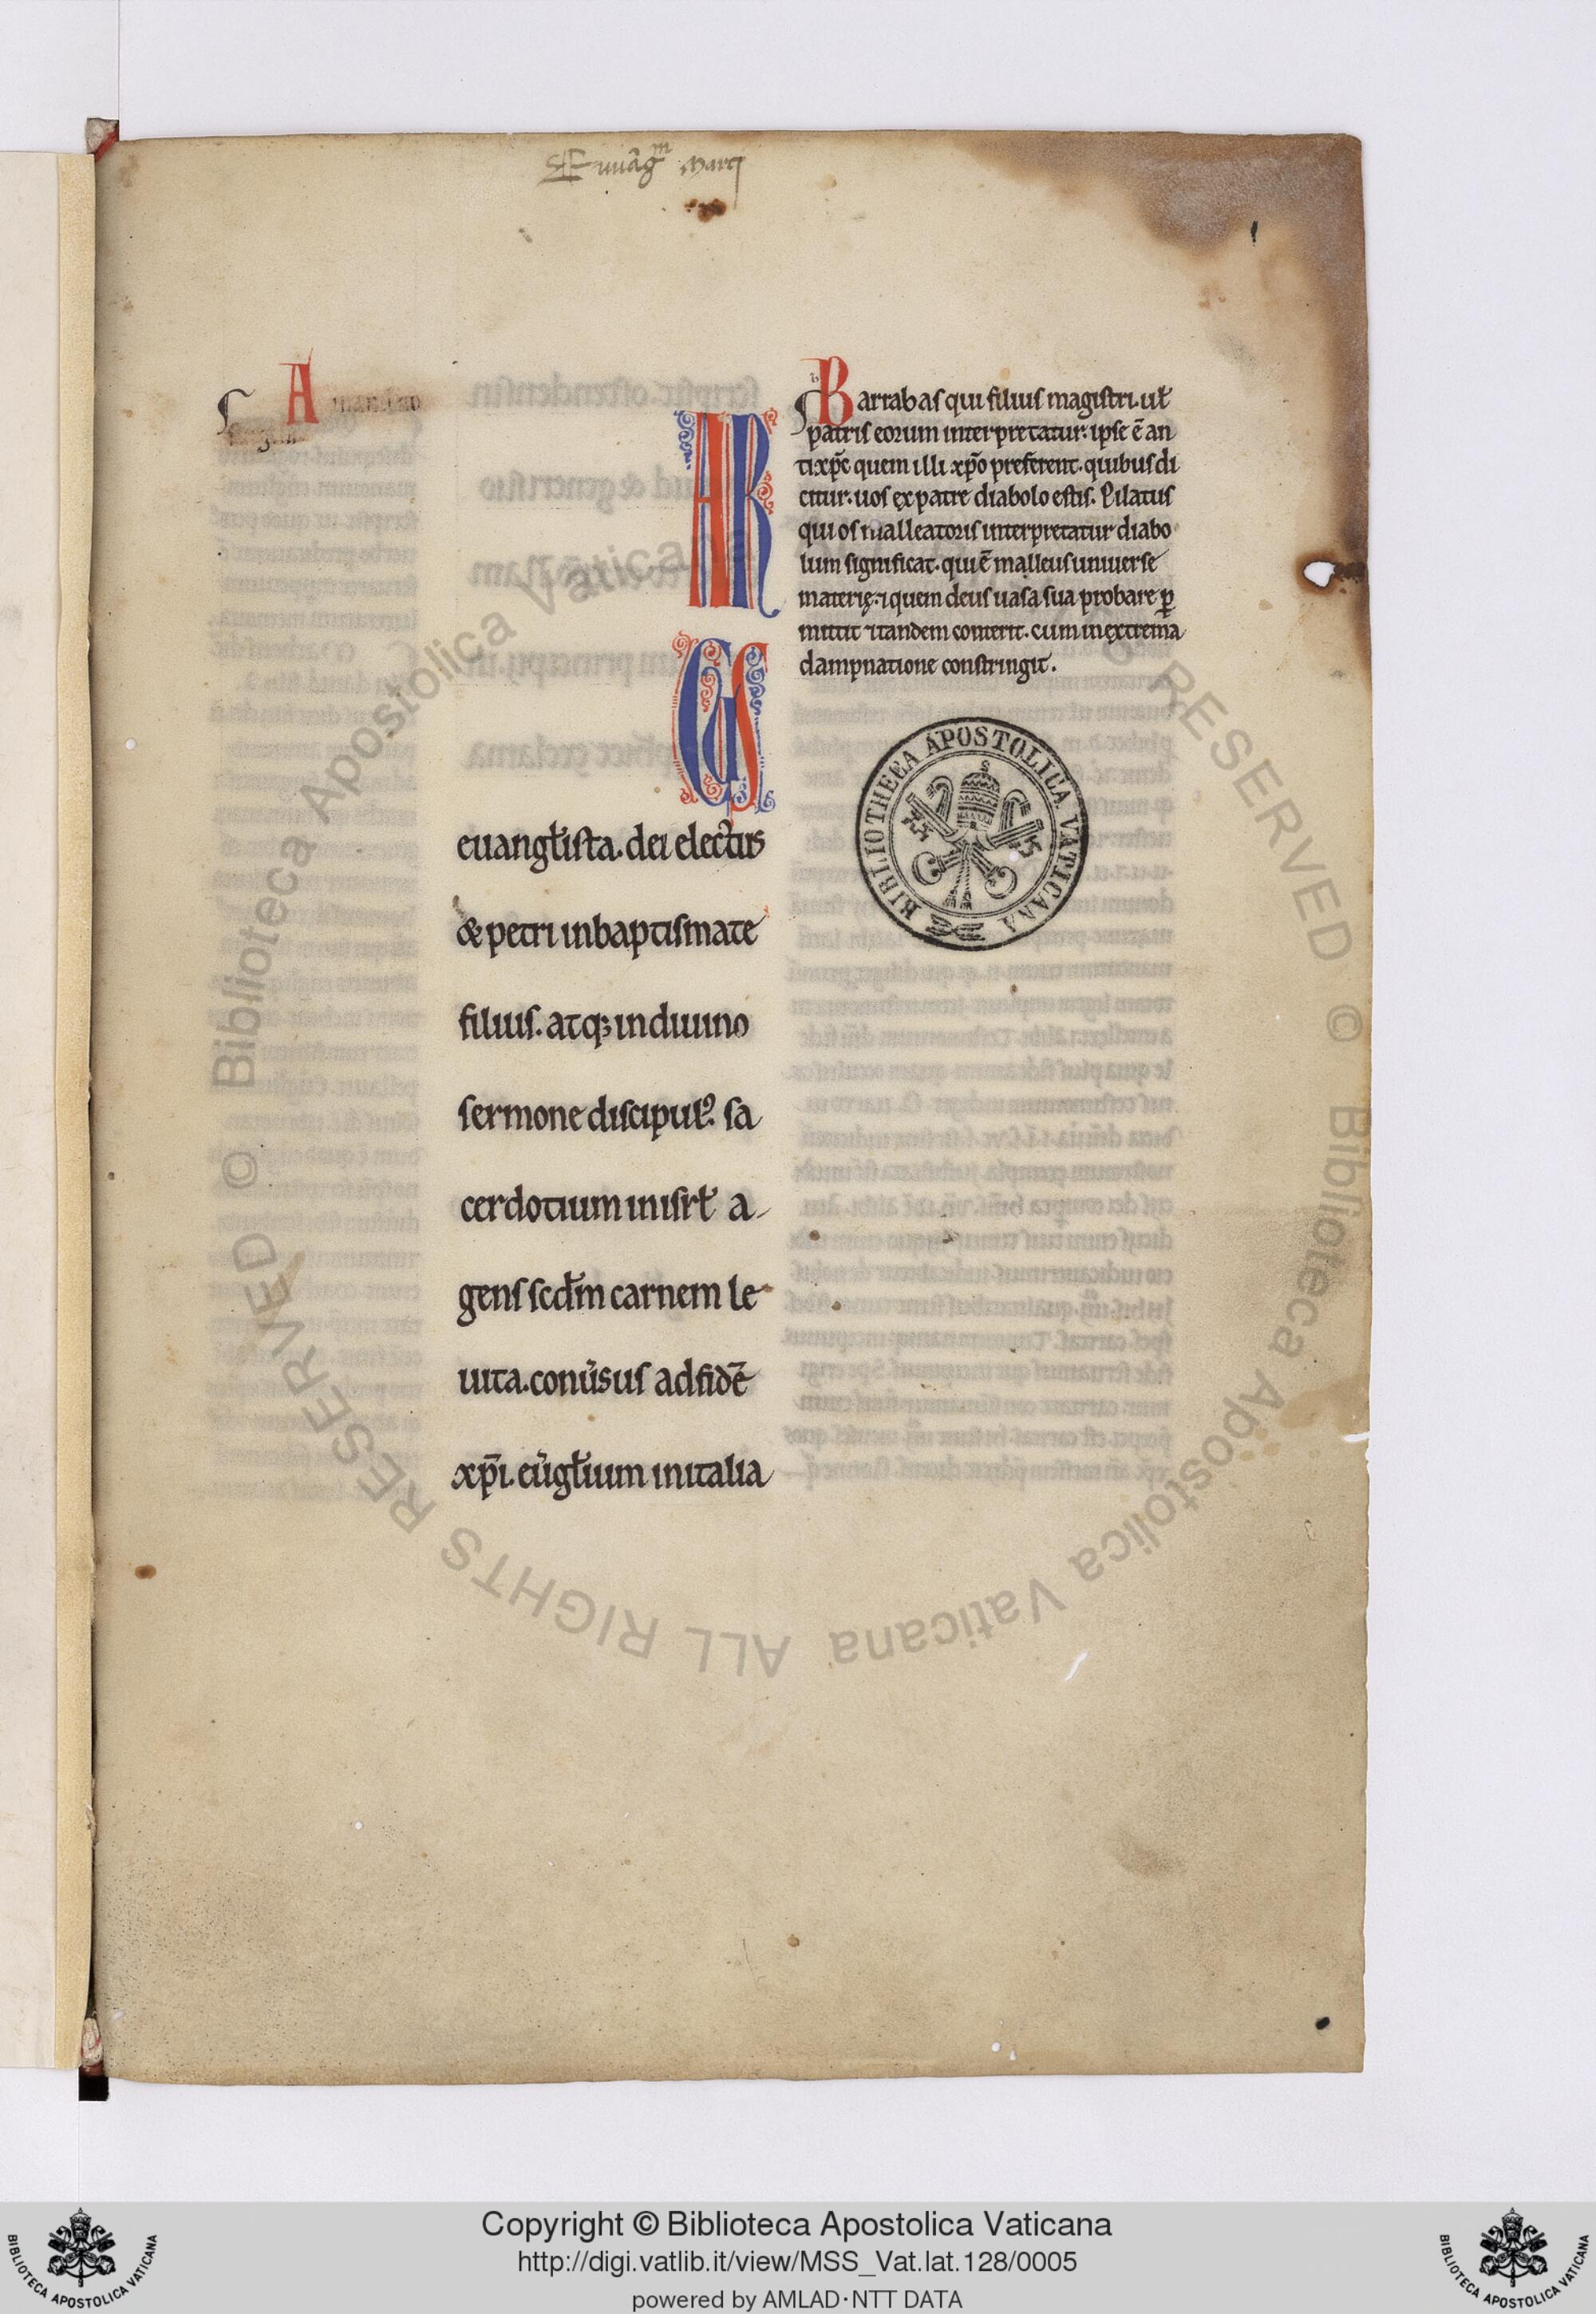 Euuāg^m Marcj
1
A
MAR
CUS
euangl̄ista. dei electus
& petri inbaptismate
filius. atq; indiuino
sermone discipulꝰ. sa
cerdotium inisrl̄ a-
gens scdm̄ carnem le
uita. conũsus adfidē
xp̄i. eũgl̄ium initalia
Barrabas qui filius magistri. ul̄
patris eorum interpretatur. ipse ē an
tixp̄c quem illi xp̄o preferent. quibus di
citur. uos ex patre diabolo estis. Pilatus
qui os malleatoris interpretatur diabo
lum significat. qui ē malleus uniuerse
materię. ⁊ quem deus uasa sua probare ꝑ
mittit ⁊ tandem conterit. cum inextrema
dampnatione constringit.
BIBLIOTHECA APOSTOLICA VATICANA
© Biblioteca Apostolica Vaticana ALL RIGHTS RESERVED
© Biblioteca Apostolica Vaticana ALL RIGHTS RESERVED
Copyright © Biblioteca Apostolica Vaticana
http://digi.vatlib.it/view/MSS_Vat.lat.128/0005
powered by AMLAD·NTT DATA
BIBLIOTECA APOSTOLICA VATICANA
BIBLIOTECA APOSTOLICA VATICANA